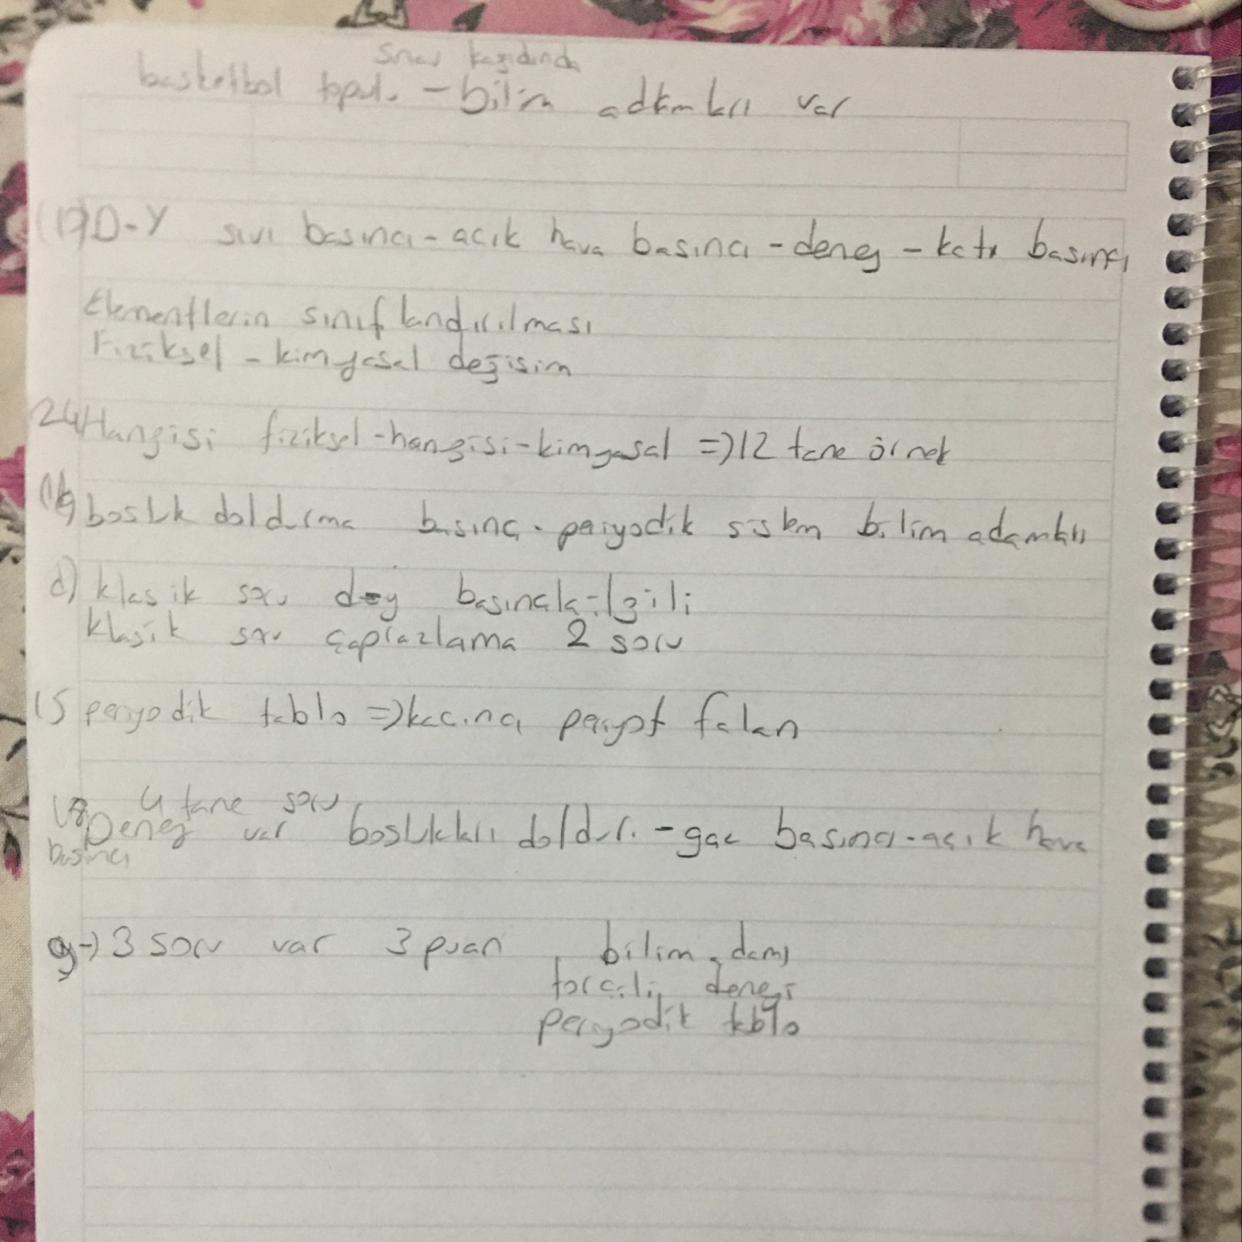 sınav kağıdında
basketbol topu. - bilim adamları var
(19) D-Y sıvı basıncı - acık hava basıncı - deney - katı basıncı
Elementlerin sınıflandırılması
Fiziksel - kimyasal değişim
24 Hangisi fiziksel - hangisi - kimyasal => 12 tane örnek
boşluk doldurma basınç - periyodik sistem bilim adamları
d) klasik soru basıncla ilgili
klasik soru çaprazlama 2 soru
15 peryodik tablo => kaçıncı peryot falan
4 tane soru
Deney var boşluklu doldur. - gaz basıncı - açık hava
basıncı
g-) 3 soru var 3 puan bilim adamı
torçelli deneyi
peryodik tablo